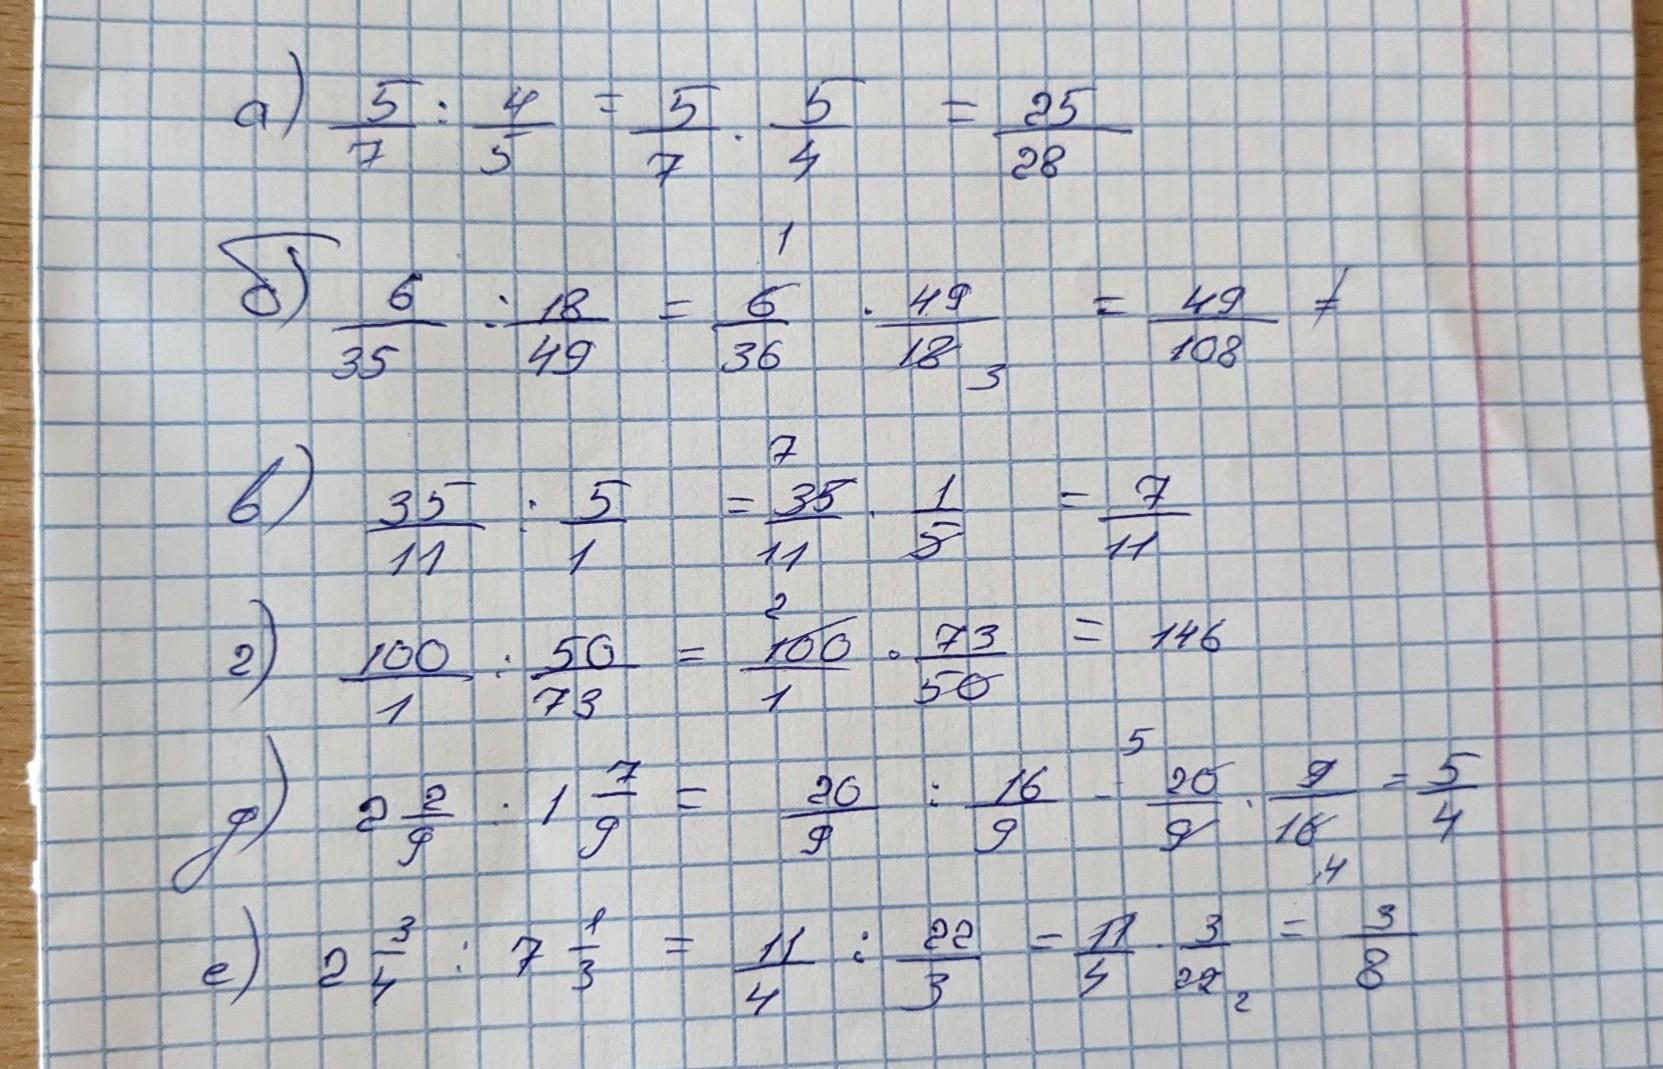 а) 5/7 : 4/5 = 5/7 · 5/4 = 25/28
1
б) 6/35 : 18/49 = 6/36 · 49/18 3 = 49/108 ≠
7
в) 35/11 : 5/1 = 35/11 · 1/5 = 7/11
2
г) 100/1 : 50/73 = 100/1 · 73/50 = 146
5
д) 2 2/9 : 1 7/9 = 20/9 : 16/9 - 20/9 · 9/16 = 5/4
4
е) 2 3/4 : 7 1/3 = 11/4 : 22/3 = 11/4 · 3/22 2 = 3/8